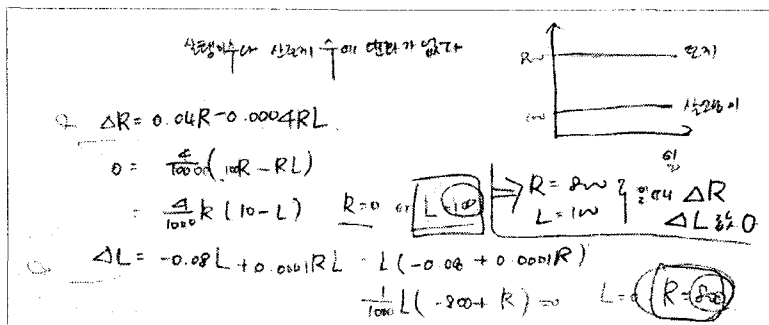 살쾡이수나 산토끼 수에 변화가 없다
R
토끼
100
살쾡이
ΔR = 0.04R - 0.0004RL
0 = 4/10000 (100R - RL)
= 4/1000 R (10 - L)  R=0 or L=100
⇒ R = 800
L = 100
일때 ΔR
ΔL 모두 0
ΔL = -0.08L + 0.0001RL = L(-0.08 + 0.0001R)
1/1000 L(-800 + R) = 0  L=0 R=800